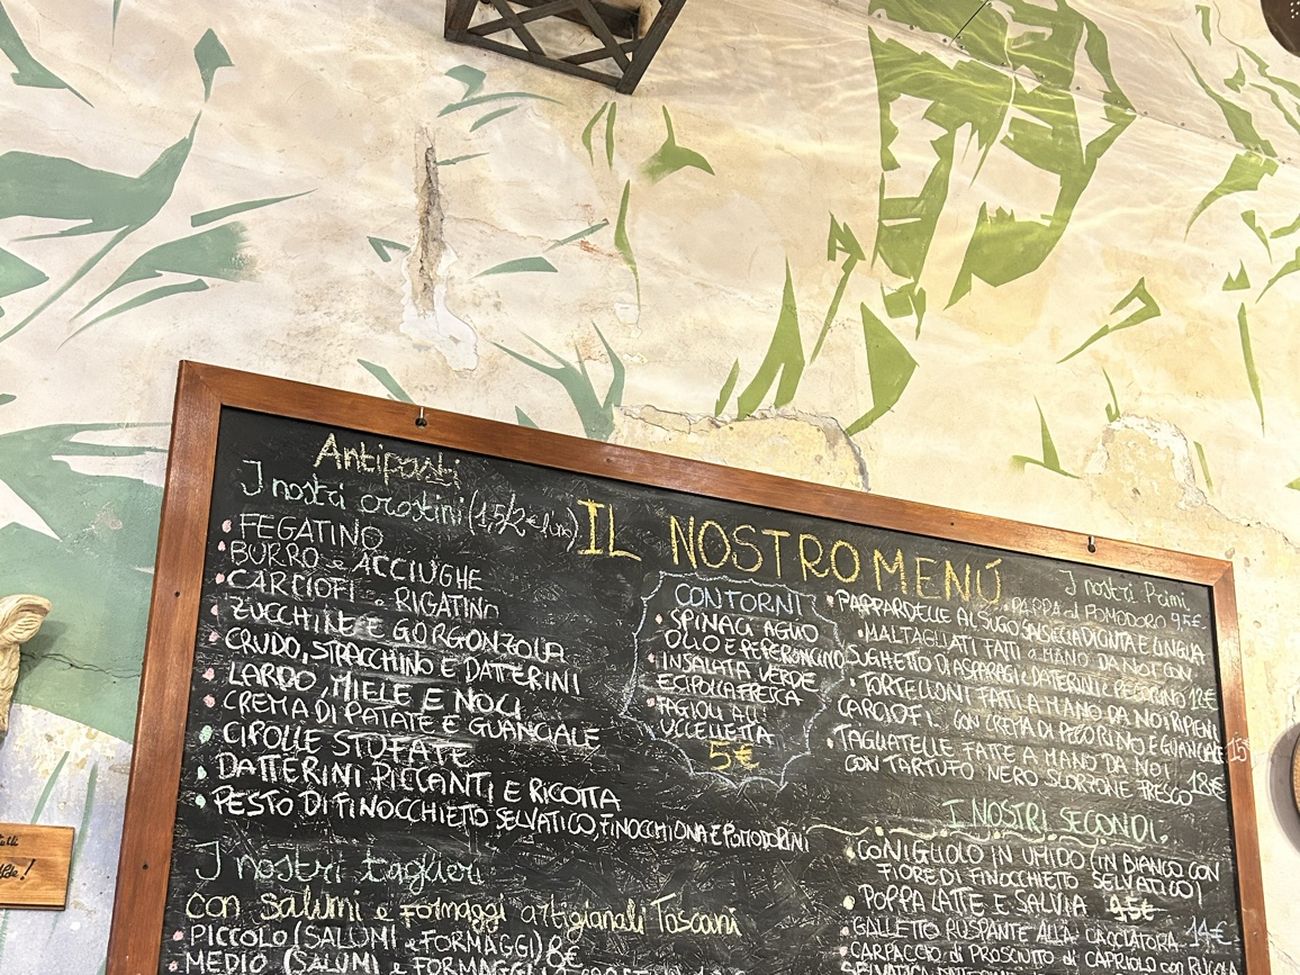 Antipasti
I nostri crostini (1,5/2€ l'uno)
• FEGATINO
• BURRO e ACCIUGHE
• CARCIOFI e RIGATINO
• ZUCCHINE E GORGONZOLA
• CRUDO, STRACCHINO E DATTERINI
• LARDO, MIELE E NOCI
• CREMA DI PATATE E GUANCIALE
• CIPOLLE STUFATE
• DATTERINI PICCANTI E RICOTTA
• PESTO DI FINOCCHIETTO SELVATICO, FINOCCHIONA E POMODORINI
I nostri taglieri
con salumi e formaggi artigianali Toscani
• PICCOLO (SALUMI e FORMAGGI) 8€
• MEDIO (SALUMI e FORMAGGI
IL NOSTRO MENÚ
CONTORNI
• SPINACI AGLIO
OLIO E PEPERONCINO
• INSALATA VERDE
E CIPOLLA FRESCA
• FAGIOLI ALL'
UCCELLETTA
5€
I nostri Primi
• PAPPA al POMODORO 9,5€
• PAPPARDELLE AL SUGO SALSICCIA DI CINTA E LINGUA
• MALTAGLIATI FATTI a MANO DA NOI CON
SUGHETTO DI ASPARAGI E DATTERINI E PECORINO 12€
• TORTELLONI FATTI A MANO DA NOI RIPIENI
CARCIOFI... CON CREMA DI PECORINO E GUANCIALE 15€
• TAGLIATELLE FATTE A MANO DA NOI
CON TARTUFO NERO SCORZONE FRESCO 18€
I NOSTRI SECONDI
• CONIGLIOLO IN UMIDO (IN BIANCO CON
FIORE DI FINOCCHIETTO SELVATICO)
• POPPA LATTE E SALVIA 9,5€
• GALLETTO RUSPANTE ALLA CACCIATORA 14€
• CARPACCIO di PROSCIUTTO di CAPRIOLO con RUCOLA
SELVATICA